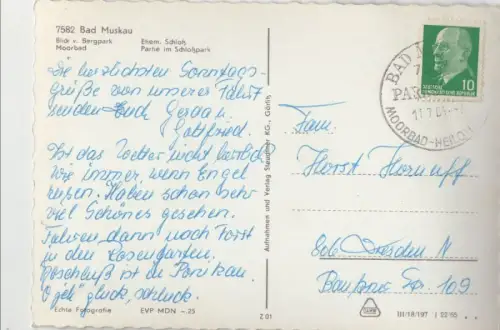 7582 Bad Muskau
Blick v. Bergpark
Moorbad
Ehem. Schloß
Partie im Schloßpark
Die herzlichsten Sonntags-
grüße von unserer Fahrt
senden Euch Gerda u.
Gottfried.
Ist das Wetter nicht herrlich
wie immer, wenn Engel
reisen. Haben schon sehr
viel Schönes gesehen.
Fahren dann noch Forst
zu den Rosengarten.
Abschluß ist in
"O je" gluck, schluck.
Echte Fotografie
EVP MDN -.25
Z 01
Aufnahmen und Verlag Staudner KG., Görlitz
BAD M
PAR
MOORBAD-HEILQU
10
DEUTSCHE
DEMOKRATISCHE REPUBLIK
Fam.
Horst
806 Dresden N
Bautzner Str. 109
III/18/197